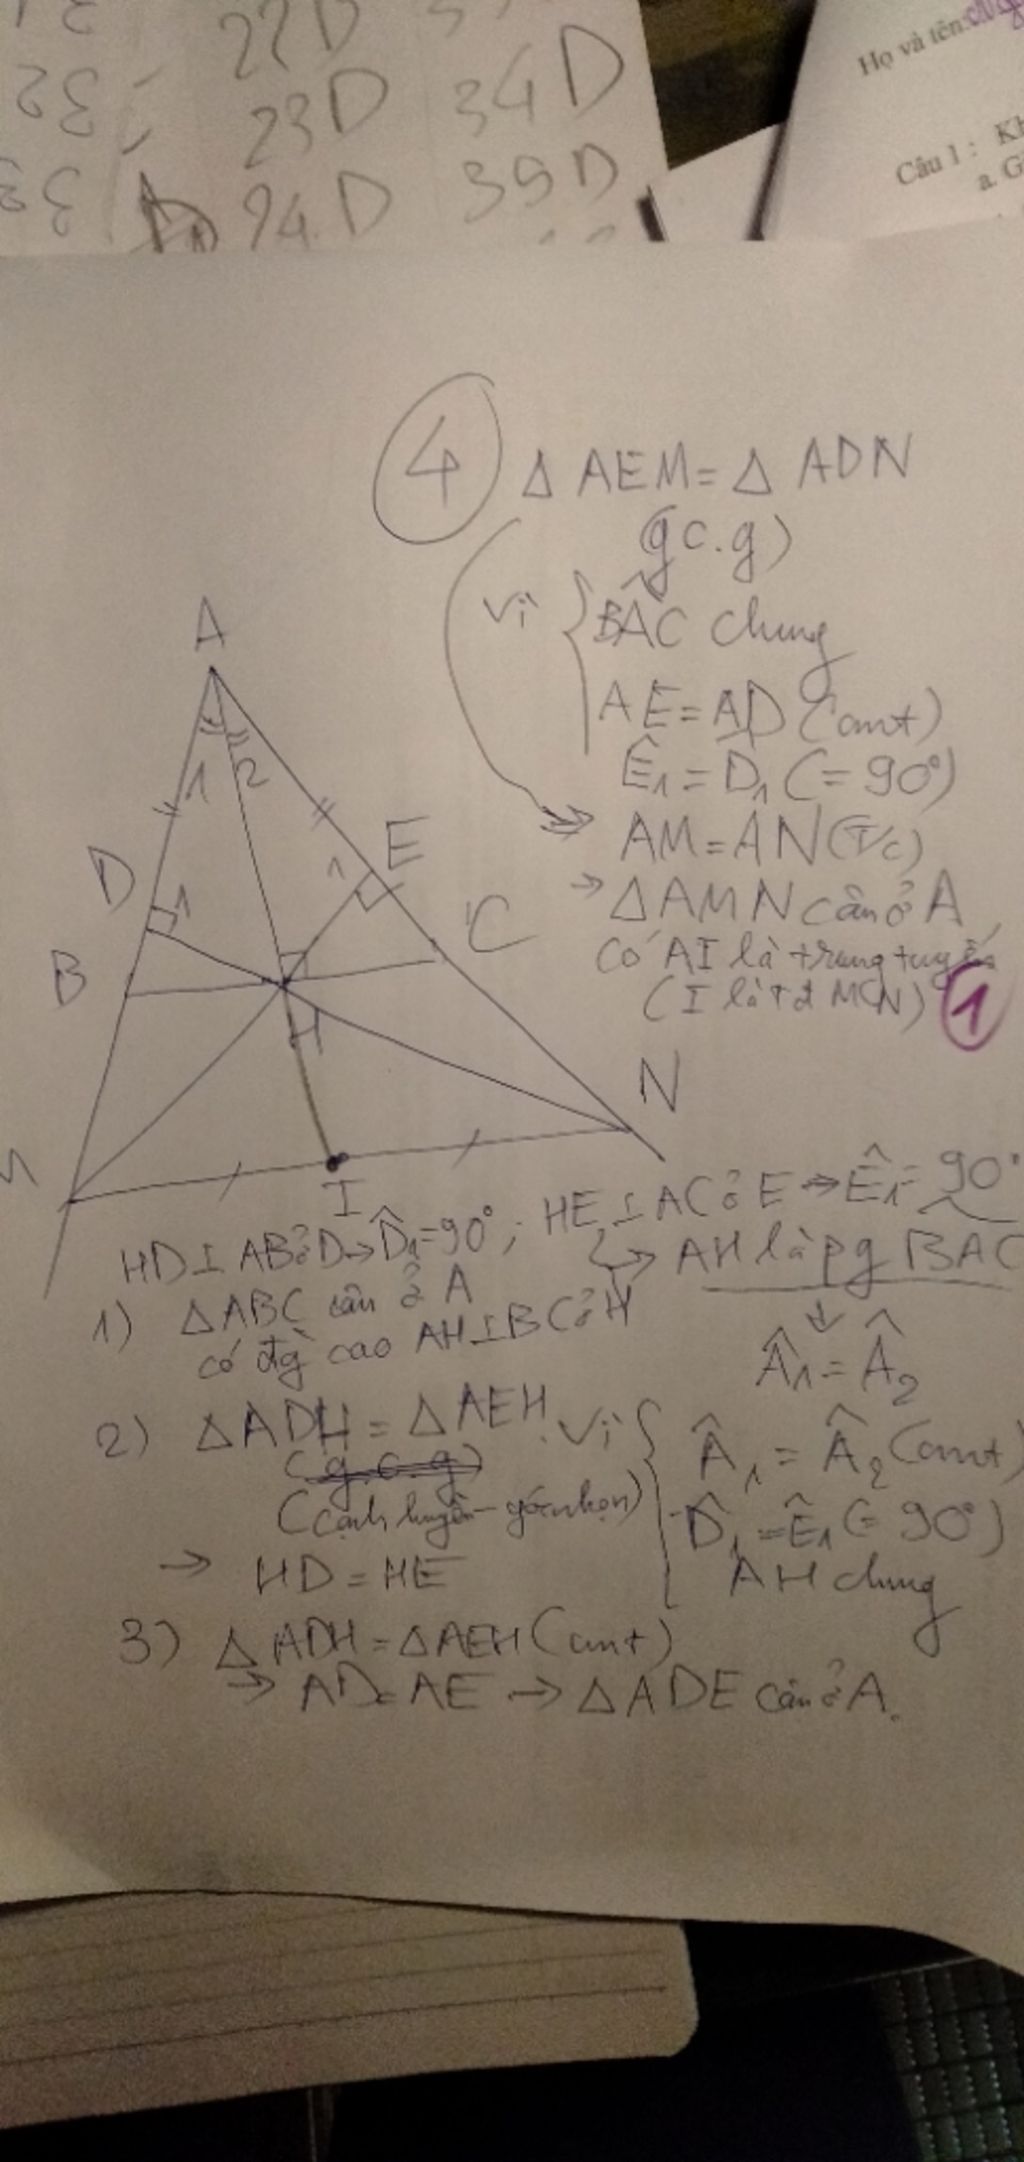 22D
32
23D
34D
33
24D
35D
Họ và tên:
Câu 1 : Kh
a. G
4
Δ AEM = Δ ADN
(g.c.g)
Vì
BÂC chung
AE = AD (cmt)
Ê1 = D̂1 (= 90°)
AM = AN (T/c)
→ ΔAMN cân ở A
có AI là trung tuyến
(I là tđ MN)
1
A
1
2
D
1
1
E
B
C
H
N
M
I
HD⊥ABởD→D̂1=90°; HE⊥ACởE→Ê1=90°
↳ AH là pg BAC
1) ΔABC cân ở A
có đg cao AH⊥BCởH
↓
Â1 = Â2
2) ΔADH = ΔAEH. Vì
(g.c.g)
(Cạnh huyền - góc nhọn)
Â1 = Â2 (cmt)
D̂1 = Ê1 (= 90°)
AH chung
→ HD = HE
3) ΔADH = ΔAEH (cmt)
→ AD = AE → ΔADE cân ở A.